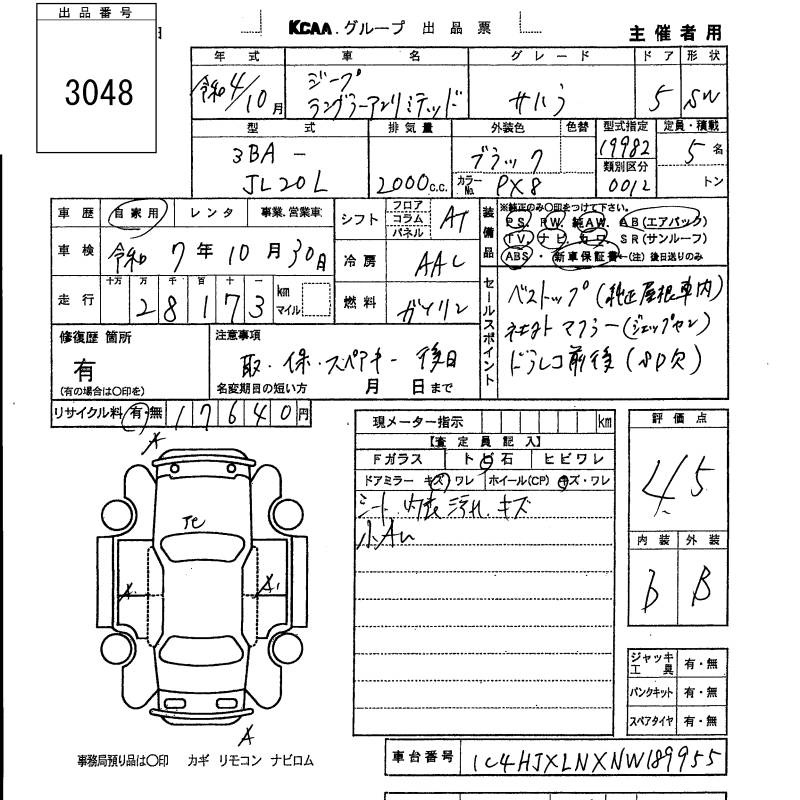 出品番号
3048
KCAA.グループ 出品票
主催者用
年式 車名 グレード ドア 形状
令和4/10月 ジープ ラングラーアンリミテッド サハラ 5 SW
型式 排気量 外装色 色替 型式指定 定員・積載
3BA - JL20L 2000c.c. ブラック 19982 5名
カラーNo. PX8 類別区分 0012 トン
車歴 自家用 レンタ 事業.営業車
シフト フロア コラム パネル AT
車検 令和7年10月30日
冷房 AAC
走行 十万 万 千 百 十 一
28173 km マイル
燃料 ガソリン
装備品
※純正のみ〇印をつけて下さい。
PS. PW. 純AW. AB(エアバック)
TV. ナビ. カワ. SR(サンルーフ)
ABS. 新車保証書←(注)後日送りのみ
セールスポイント
ベストップ(純正屋根車内)
社外マフラー(ジェップセン)
ドラレコ前後(SD欠)
修復歴 箇所
有
(有の場合は〇印を)
注意事項
取・保・スペアキー 後日
名変期日の短い方 月 日まで
リサイクル料 有・無 17640円
現メーター指示 km
【査定員記入】
Fガラス トビ石 ヒビワレ
ドアミラー キズ ワレ ホイール(CP) キズ・ワレ
シート 内装 汚れ キズ
小A
評価点
4.5
内装 外装
B
ジャッキ工具 有・無
パンクキット 有・無
スペアタイヤ 有・無
A
A
A1
A
事務局預り品は〇印 カギ リモコン ナビロム
車台番号 1C4HJXLNXNW189955